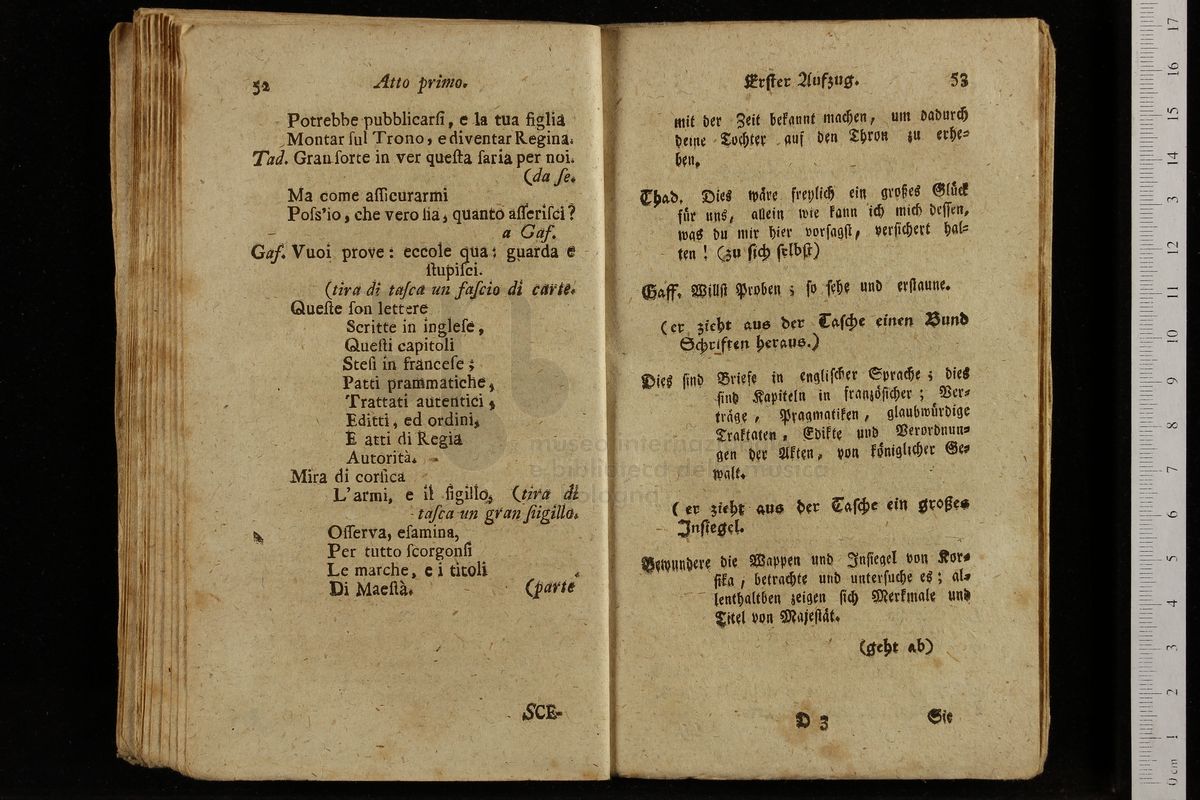 52 Atto primo.
Potrebbe pubblicarſi, e la tua figlia
Montar ſul Trono, e diventar Regina.
Tad. Gran ſorte in ver queſta ſaria per noi.
(da ſe.
Ma come aſſicurarmi
Poſs'io, che vero ſia, quanto aſſeriſci?
a Gaf.
Gaf. Vuoi prove: eccole qua: guarda e
ſtupiſci.
(tira di taſca un faſcio di carte.
Queſte ſon lettere
Scritte in ingleſe,
Queſti capitoli
Steſi in franceſe;
Patti prammatiche,
Trattati autentici,
Editti, ed ordini,
E atti di Regia
Autorità.
Mira di corſica
L'armi, e il ſigillo, (tira di
taſca un gran ſiigillo.
Oſſerva, eſamina,
Per tutto ſcorgonſi
Le marche, e i titoli
Di Maeſtà. (parte
SCE-
Erſter Aufzug. 53
mit der Zeit bekannt machen, um dadurch
deine Tochter auf den Thron zu erhe=
ben.
Thad. Dies wäre freylich ein großes Glück
für uns, allein wie kann ich mich deſſen,
was du mir hier vorſagſt, verſichert hal=
ten! (zu ſich ſelbſt)
Gaff. Willſt Proben; ſo ſehe und erſtaune.
(er zieht aus der Taſche einen Bund
Schriften heraus.)
Dies ſind Briefe in engliſcher Sprache; dies
ſind Kapiteln in franzöſicher; Ver=
träge, Pragmatiken, glaubwürdige
Traktaten, Edikte und Verordnun=
gen der Akten, von königlicher Ge=
walt.
(er zieht aus der Taſche ein großes
Inſiegel.
Bewundere die Wappen und Inſiegel von Kor=
ſika, betrachte und unterſuche es; al=
lenthaltben zeigen ſich Merkmale und
Titel von Majeſtät.
(geht ab)
D 3 Sie
museo internaz
e biblioteca della musica